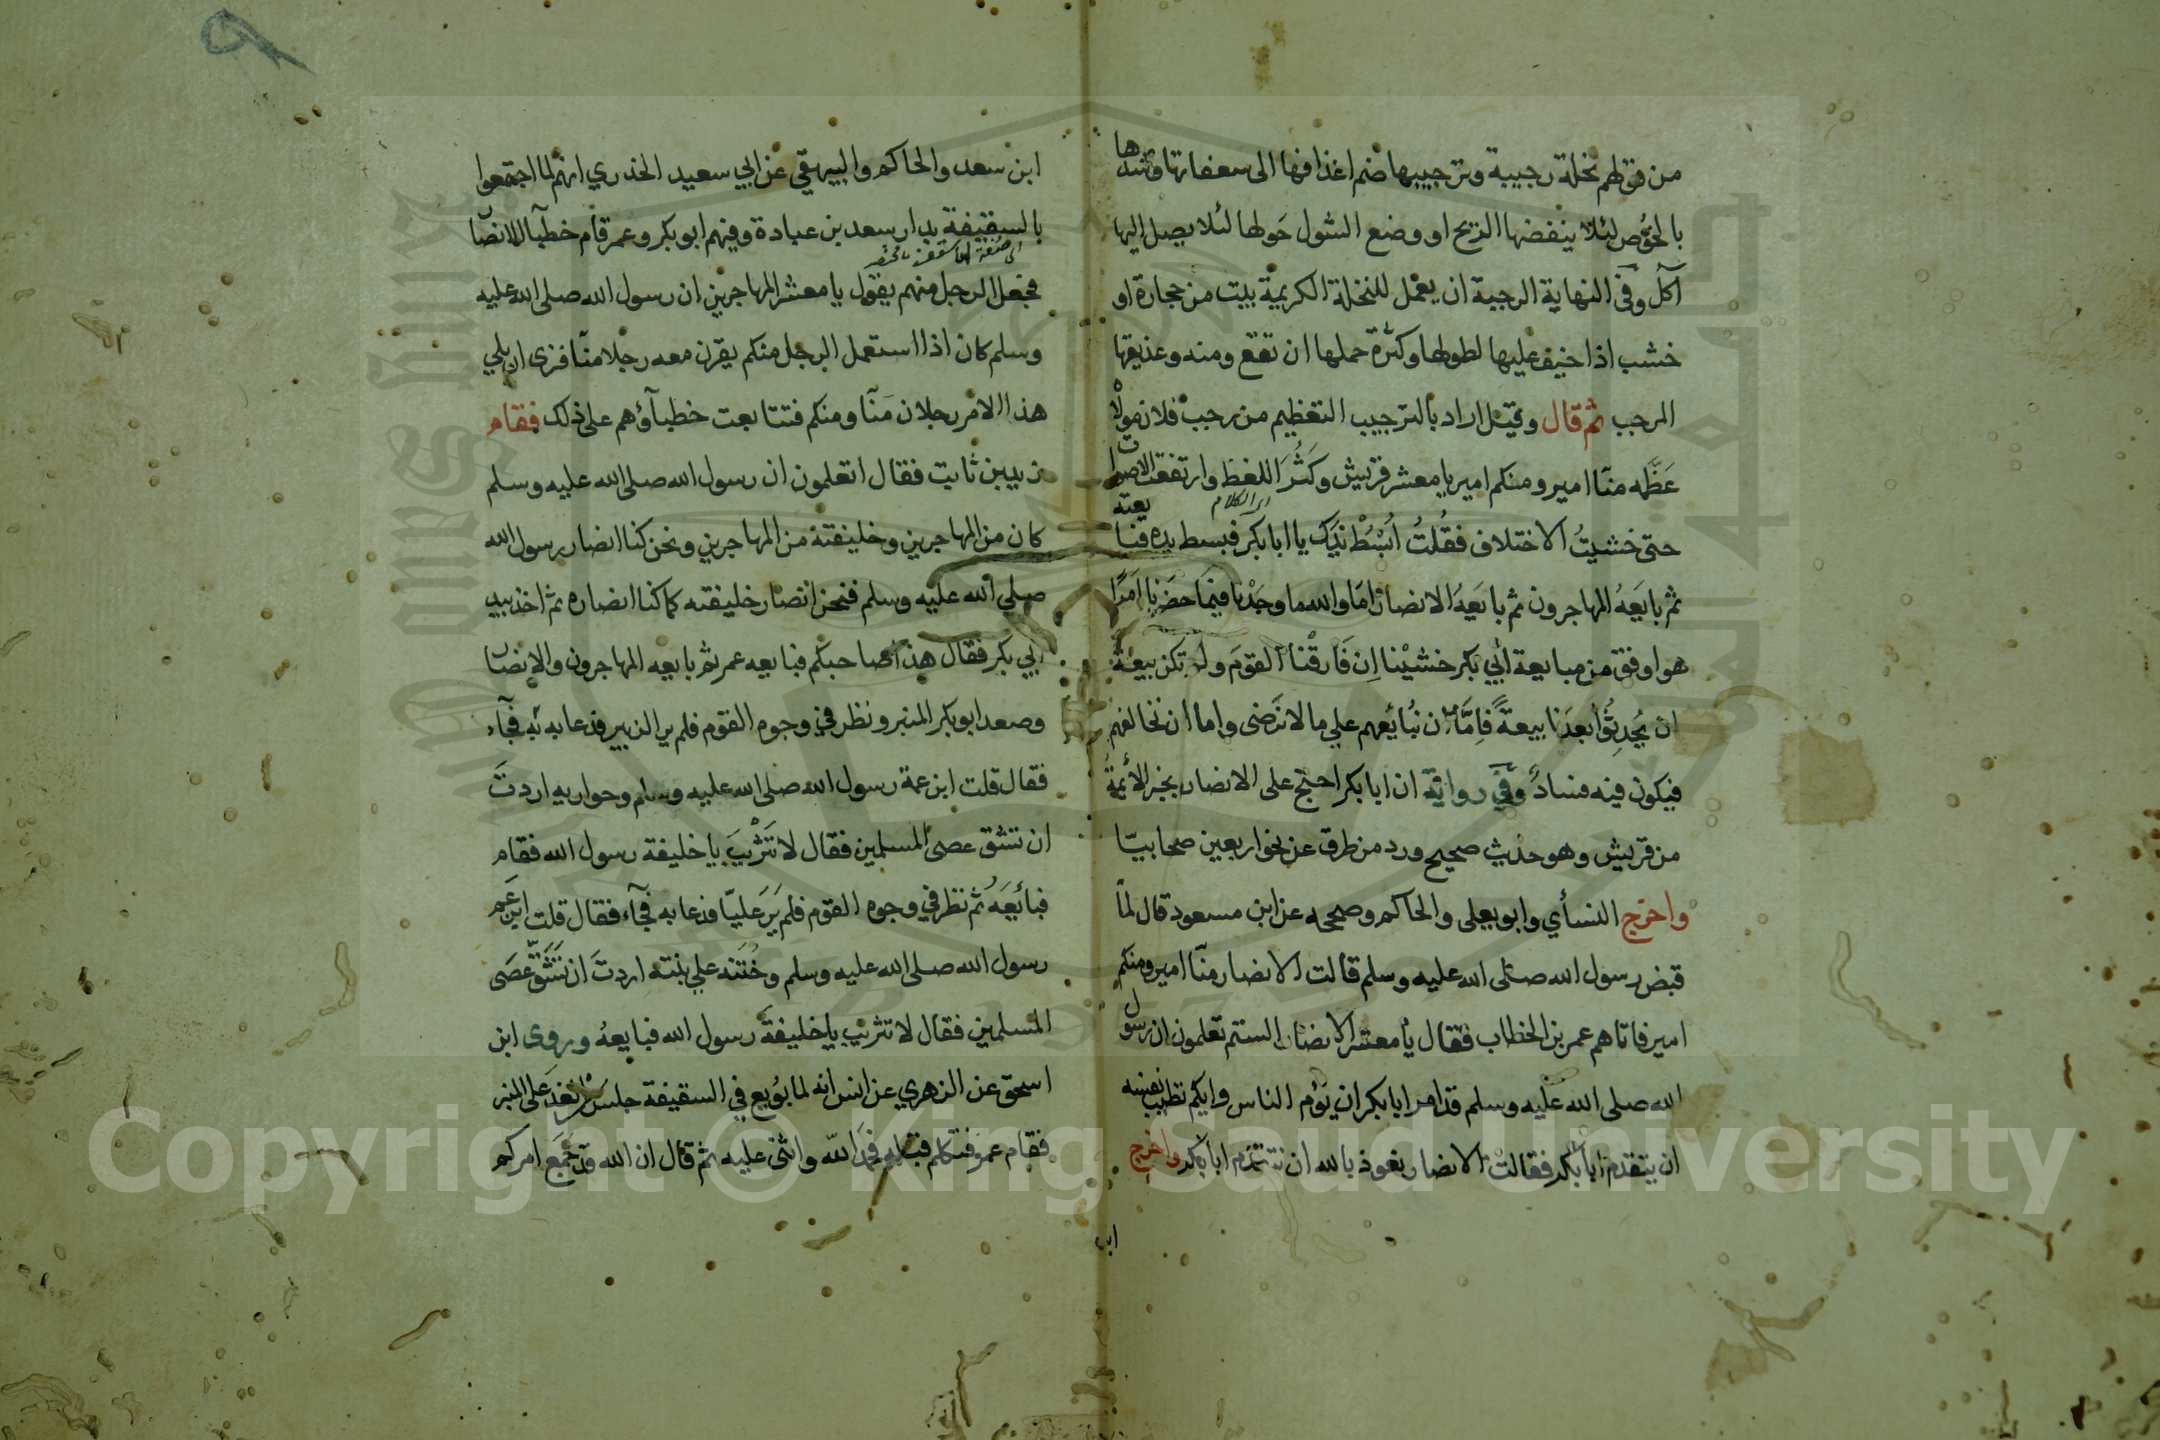 من قولهم نخلة رجيبة وترجيبها ضم اغذاقها الى سعفاتها وشدها
بالخوص لئلا ينفضها الريح او وضع الشول حولها لئلا يصل اليها
آكل وفي النهاية الرجبة ان يعمل للنخلة الكريمة بيت من حجارة او
خشب اذا خيف عليها لطولها وكثرة حملها ان تقع ومنه وعذيقها
المرجب ثم قال وقيل اراد بالترجيب التعظيم من رجب فلان مولاه
عَظَّمه منّا امير ومنكم امير يا معشر قريش وكَثُرَ اللغط وارتفعت الاصوات
اي الكلام
حتى خشيتُ الاختلاف فقُلتُ اُبْسُطْ يَدَك يا ابا بكر فبسط يده فبايعته
ثم بايَعَهُ المهاجرون ثم بايَعَهُ الانصار امَا والله ما وجَدْنا فيمَا حضَرنا اَمْرًا
هو اوفق من مبايعة ابي بكر خشيْنا اِن فَارقْنا القومَ ولم تكن بيعة
ان يُحدِثُوْا بَعدَنا بيعةً فاِمَّا ان نُبايعهم علي ما لا نَرضى واما ان نخالفهم
فيكون فيه فسادٌ وفي رواية ان ابا بكر احتج على الانصار بخبر الأئمةُ
من قريش وهو حديث صحيح ورد من طرق عن نحو اربعين صحابيّا
واخرج النسأي وابو يعلى والحاكم وصححه عن ابن مسعود قال لمّا
قبض رسول الله صلى الله عليه وسلم قالت الانصار منّا امير ومنكم
امير فاتاهم عمر بن الخطاب فقال يا معشر الانصار الستم تعلمون ان رسول
الله صلى الله عليه وسلم قد امر ابا بكر ان يَؤم الناس وايكم تطيب نفسه
ان يتقدم ابا بكر فقالت الانصار نعوذ بالله ان نتقدّم ابا بكر واخرج
ابن
ابن سعد والحاكم والبيهقي عن ابي سعيد الخدري انهم لما اجتمعوا
بالسقيفة بدار سعد بن عبادة وفيهم ابو بكر وعمر قام خطبآ الانصار
فجعل الرجل منهم يقول يا معشر المهاجرين ان رسول الله صلى الله عليه
وسلم كان اذا استعمل الرجل منكم يقرن معه رجلا منّا فنرى ان يلي
هذا الامر رجلان منّا ومنكم فتتابعت خطبآؤهم على ذلك فقام
زيد بن ثابت فقال اتعلمون ان رسول الله صلى الله عليه وسلم
كان من المهاجرين وخليفته من المهاجرين ونحن كنا انصار رسول الله
صلي الله عليه وسلم فنحن انصار خليفته كما كنا انصاره ثم اخذ بيد
ابي بكر فقال هذا صاحبكم فبايعه عمر ثم بايعه المهاجرون والانصار
وصعد ابو بكر المنبر ونظر في وجوه القوم فلم ير الزبير فدعا به فجآء
فقال قلت ابن عمة رسول الله صلى الله عليه وسلم وحواريه اردتَ
ان تشق عصى المسلمين فقال لا تَثْريبَ يا خليفة رسول الله فقام
فبايَعَهُ ثم نظر في وجوه القوم فلم يَرَ عليّا فدعا به فجآء فقال قلت ابن عَم
رسول الله صلى الله عليه وسلم وخُتَنه علي بنته اردتَ ان تَشُقَّ عصَى
المسلمين فقال لا تثريب يا خليفة رسول الله فبايعهُ وروى ابن
اسحق عن الزهري عن انس انه لما بُويع في السقيفة جلسَ الغدَ على المنبر
فقام عمر فتكلم قبله فحمدَ اللّه واثنى عليه ثم قال ان الله قد جَمَع امركم
Copyright © King Saud University